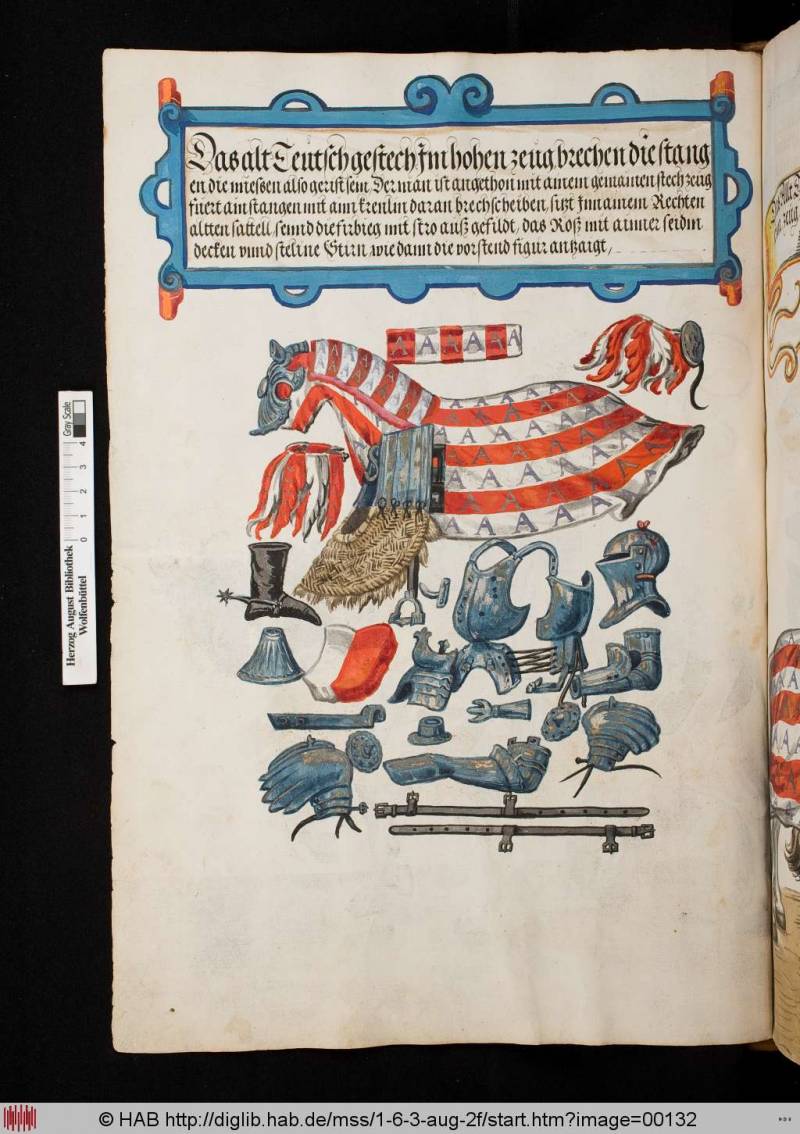 Das alt Teutsch gestech Jm hohen zeug brechen die stang
en die miessen also gerist sein Der man ist angethon mit ainem gemainen stechzeug
fuert ain stangen mit ann krenlin daran brechscheiben sizt Jnn ainem Rechten
altten sattell sennd die firbieg mit stro auß gefildt, das Roß mit ainner seidin
decken vnnd steline Stirn wie dann die vorstend figur antzaigt,
A A A A A
Herzog August Bibliothek
Wolfenbüttel
0 1 2 3 4
Gray Scale
© HAB http://diglib.hab.de/mss/1-6-3-aug-2f/start.htm?image=00132